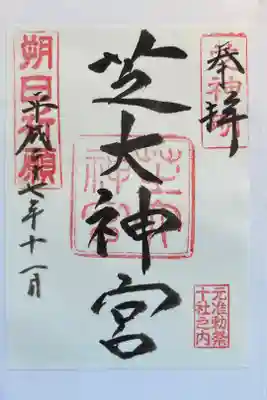 奉拝
元准勅祭
十社之内
芝大神宮
朔日祈願
平成二十七年十一月